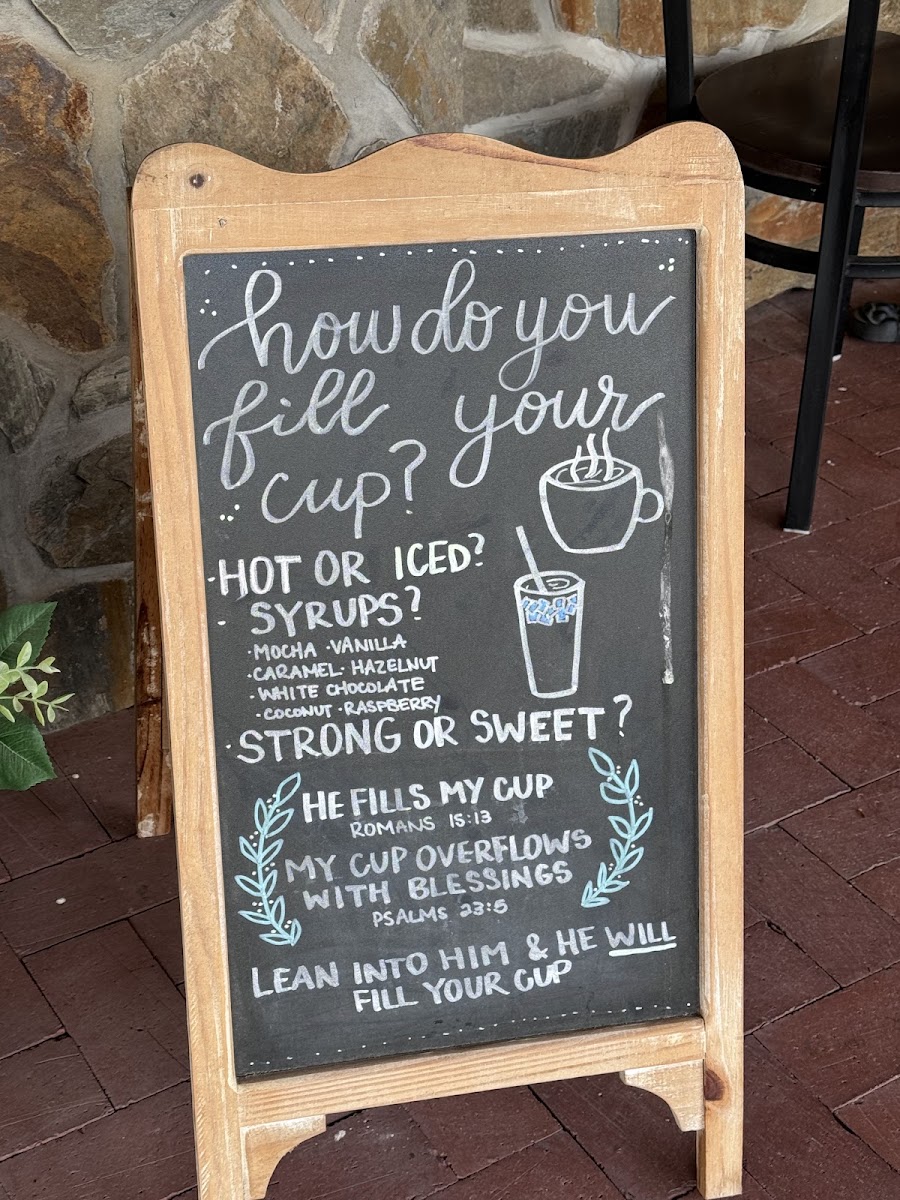 how do you
fill your
cup?
·HOT OR ICED?
· SYRUPS?
·MOCHA ·VANILLA
·CARAMEL· HAZELNUT
·WHITE CHOCOLATE
·COCONUT ·RASPBERRY
·STRONG OR SWEET?
HE FILLS MY CUP
ROMANS 15:13
MY CUP OVERFLOWS
WITH BLESSINGS
PSALMS 23:5
LEAN INTO HIM & HE WILL
FILL YOUR CUP